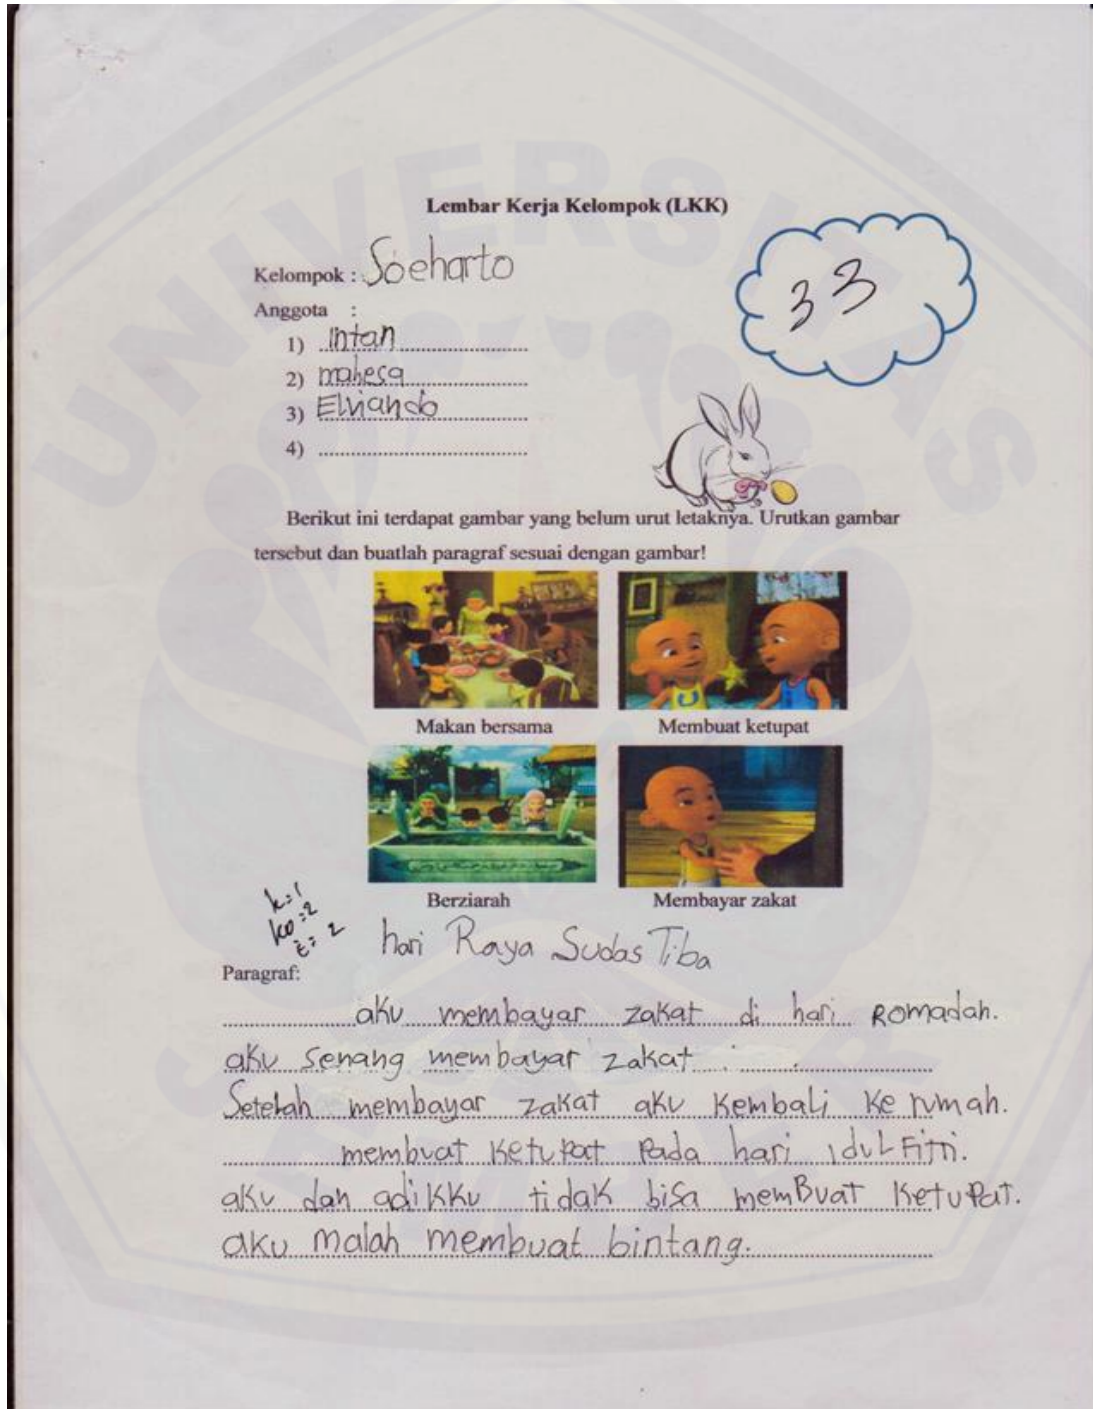 UNIVERSITAS
Lembar Kerja Kelompok (LKK)
33
Kelompok : Soeharto
Anggota :
1) Intan
2) mahesa
3) Elviando
4)
Berikut ini terdapat gambar yang belum urut letaknya. Urutkan gambar
tersebut dan buatlah paragraf sesuai dengan gambar!
Makan bersama Membuat ketupat
Berziarah Membayar zakat
k=1
ko=2
E=2
hari Raya Sudas Tiba
Paragraf:
aku membayar zakat di hari Romadah.
aku senang membayar zakat
Setelah membayar zakat aku kembali ke rumah.
membuat ketupat Pada hari idul Fitri.
aku dan adikku tidak bisa memBuat ketupat.
aku malah membuat bintang.